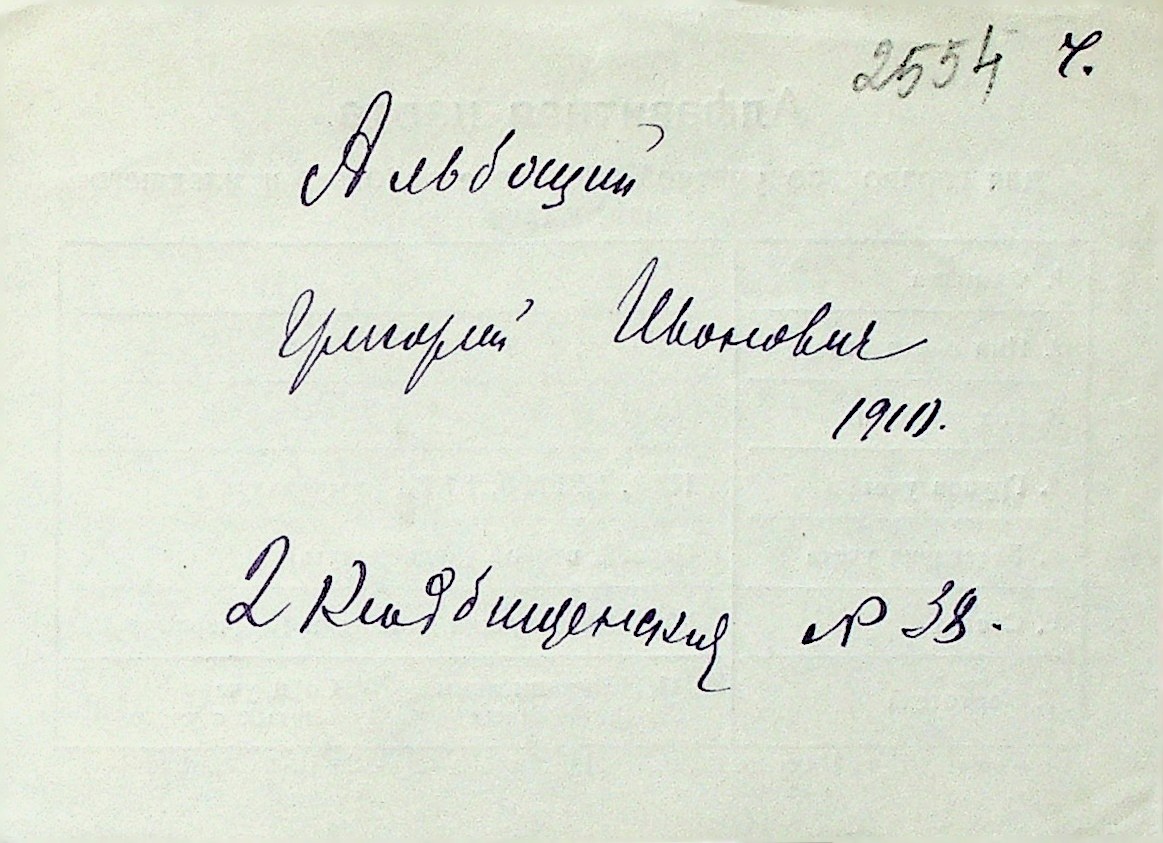 2554 ч.
Альбощий
Григорий Иванович
1910.
2 Кладбищенская № 38.